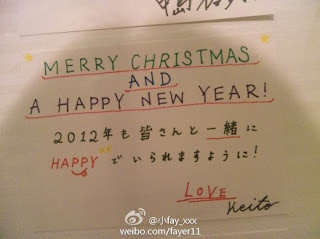 MERRY CHRISTMAS
AND
A HAPPY NEW YEAR!
2012年も皆さんと一緒に
HAPPYでいられますように!
LOVE
Keito
@小fay_xxx
weibo.com/fayer11